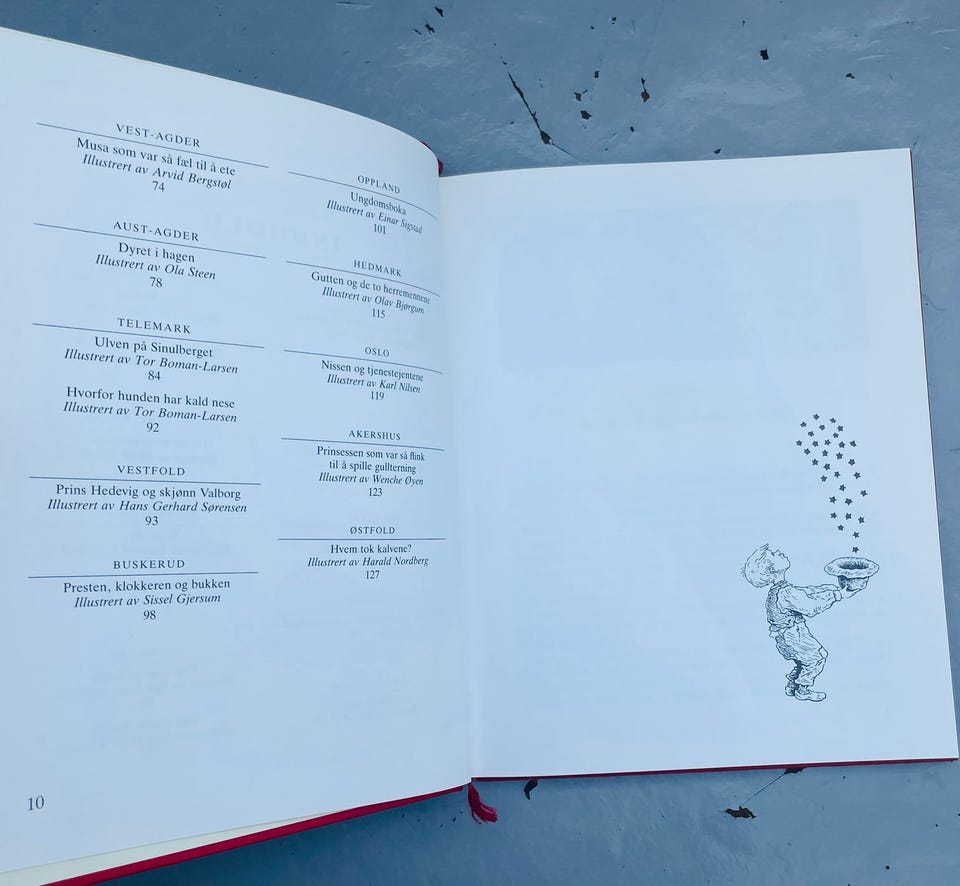 VEST-AGDER
Musa som var så fæl til å ete
Illustrert av Arvid Bergstøl
74
AUST-AGDER
Dyret i hagen
Illustrert av Ola Steen
78
TELEMARK
Ulven på Sinulberget
Illustrert av Tor Boman-Larsen
84
Hvorfor hunden har kald nese
Illustrert av Tor Boman-Larsen
92
VESTFOLD
Prins Hedevig og skjønn Valborg
Illustrert av Hans Gerhard Sørensen
93
BUSKERUD
Presten, klokkeren og bukken
Illustrert av Sissel Gjersum
98
OPPLAND
Ungdomsboka
Illustrert av Einar Sigstad
101
HEDMARK
Gutten og de to herremennene
Illustrert av Olav Bjørgum
115
OSLO
Nissen og tjenestejentene
Illustrert av Karl Nilsen
119
AKERSHUS
Prinsessen som var så flink
til å spille gullterning
Illustrert av Wenche Øyen
123
ØSTFOLD
Hvem tok kalvene?
Illustrert av Harald Nordberg
127
10